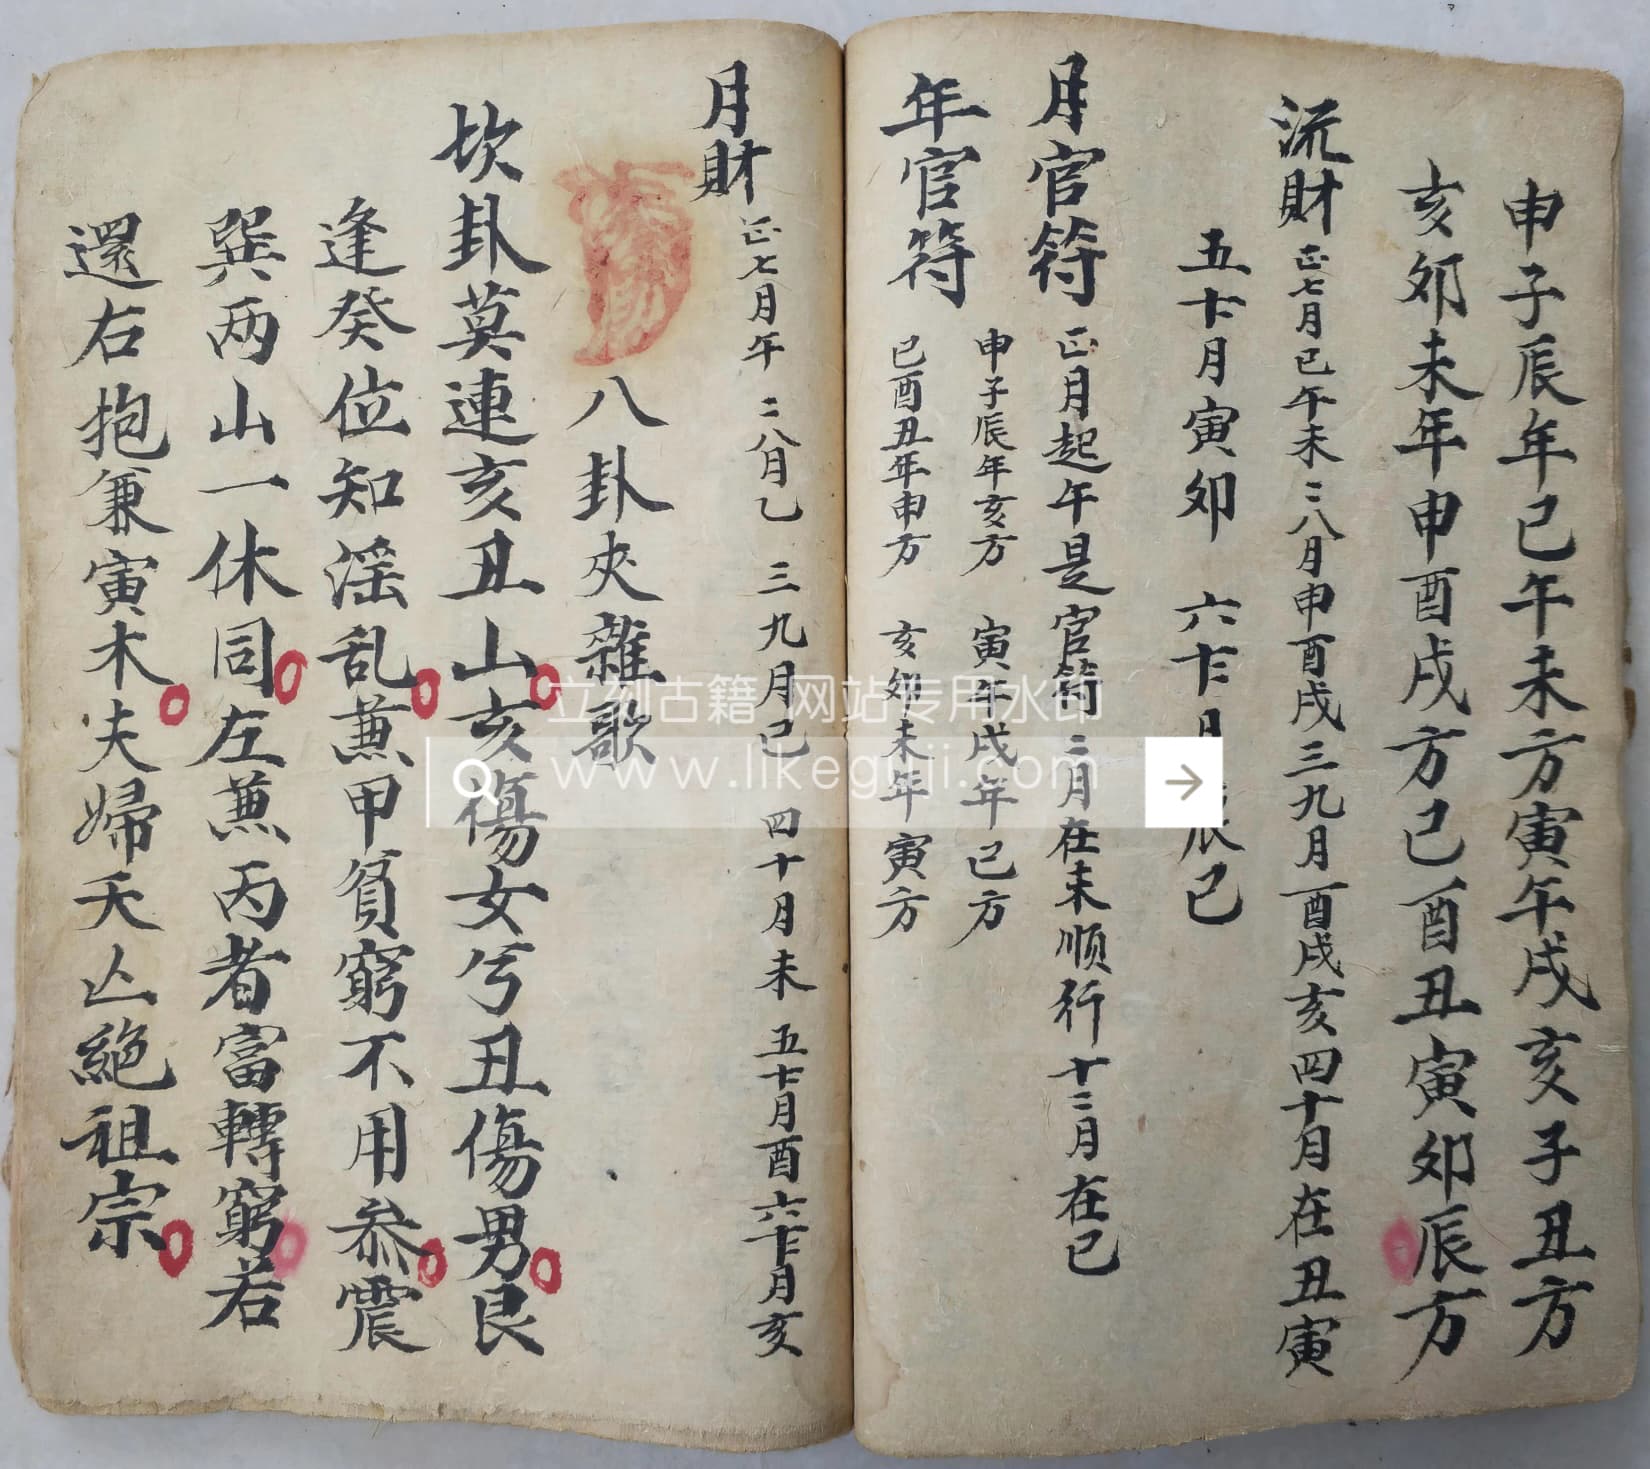 申子辰年巳午未方寅午戌亥子丑方
亥卯未年申酉戌方巳酉丑寅卯辰方
流財 正七月巳午未 二八月申酉戌 三九月酉戌亥 四十月在丑寅
五十月寅卯 六十月 辰巳
月官符 正月起午是官符 二月在未順行 十二月在巳
年官符 申子辰年亥方 寅午戌年巳方
巳酉丑年申方 亥卯未年寅方
月財 正七月午 二八月乙 三九月巳 四十月未 五十月酉 六十月亥
八卦夾雜歌
坎卦莫連亥丑山亥傷女兮丑傷男艮
逢癸位知淫乱蒹甲貧窮不用叅震
巽両山一休同左蒹丙者富轉窮若
還右抱兼寅木夫婦夭亾絕祖宗
立刻古籍 网站专用水印
www.likeguji.com